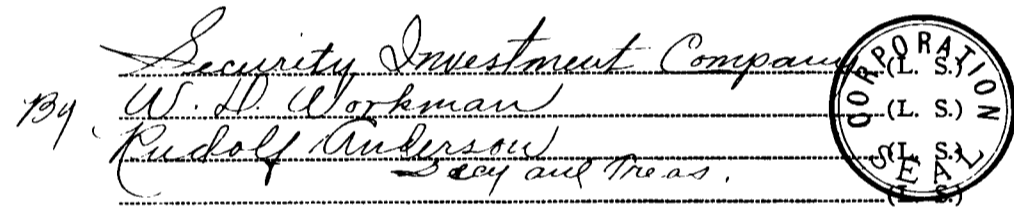 Security Investment Company (L. S.)
By W. D. Workman (L. S.)
Rudolf Anderson (L. S.)
Secy and Treas.
(L. S.)
CORPORATION SEAL